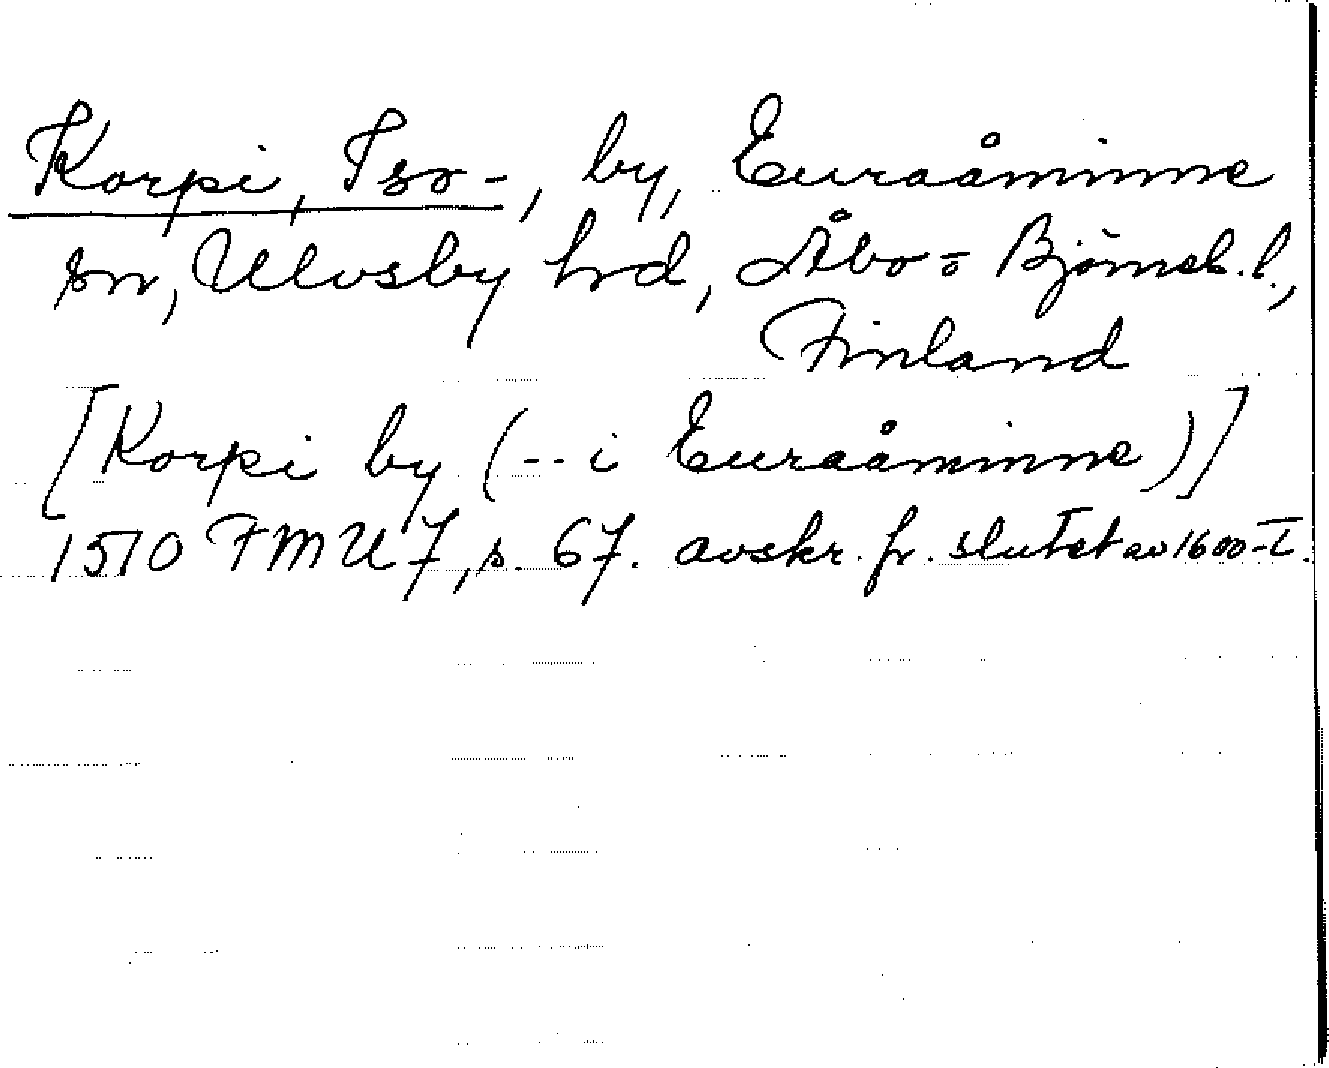 Korpi, Iso-, by, Euraåminne
sn, Ulvsby hrd, Åbo=Björneb. l.,
Finland
[Korpi by (-- i Euraåminne)]
1510 FMU 7, s. 67. avskr. fr. slutet av 1600-t.